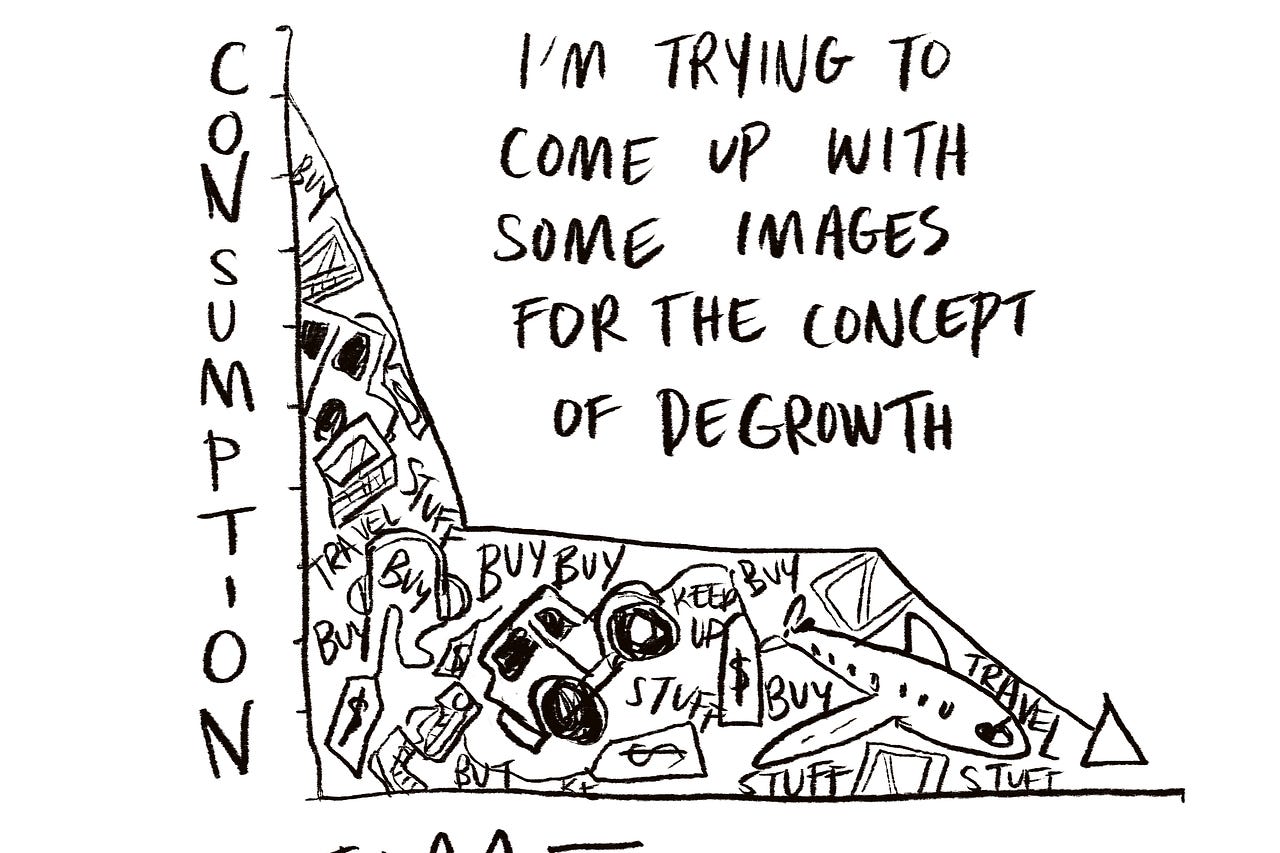 CONSUMPTION
I'M TRYING TO
COME UP WITH
SOME IMAGES
FOR THE CONCEPT
OF DEGROWTH
BUY
STUFF
TRAVEL
BUY
BUY BUY
BUY
KEEP
UP
BUY
$
STUFF
$
BUY
TRAVEL
$
$
BUY
STUFF
STUFF